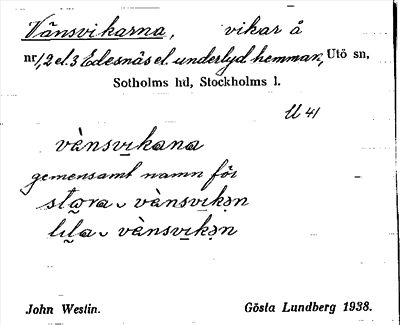 Vånsvikarna, vikar å
nr 1,2 el. 3 Edesnäs el. underlyd hemman, Utö sn,
Sotholms hd, Stockholms l.
U 41
vànsvı̲kana
gemensamt namn för
sto̰ra ᴗ vànsvı̲kən
lıl̰a ᴗ vànsvı̲kən
John Westin. Gösta Lundberg 1938.